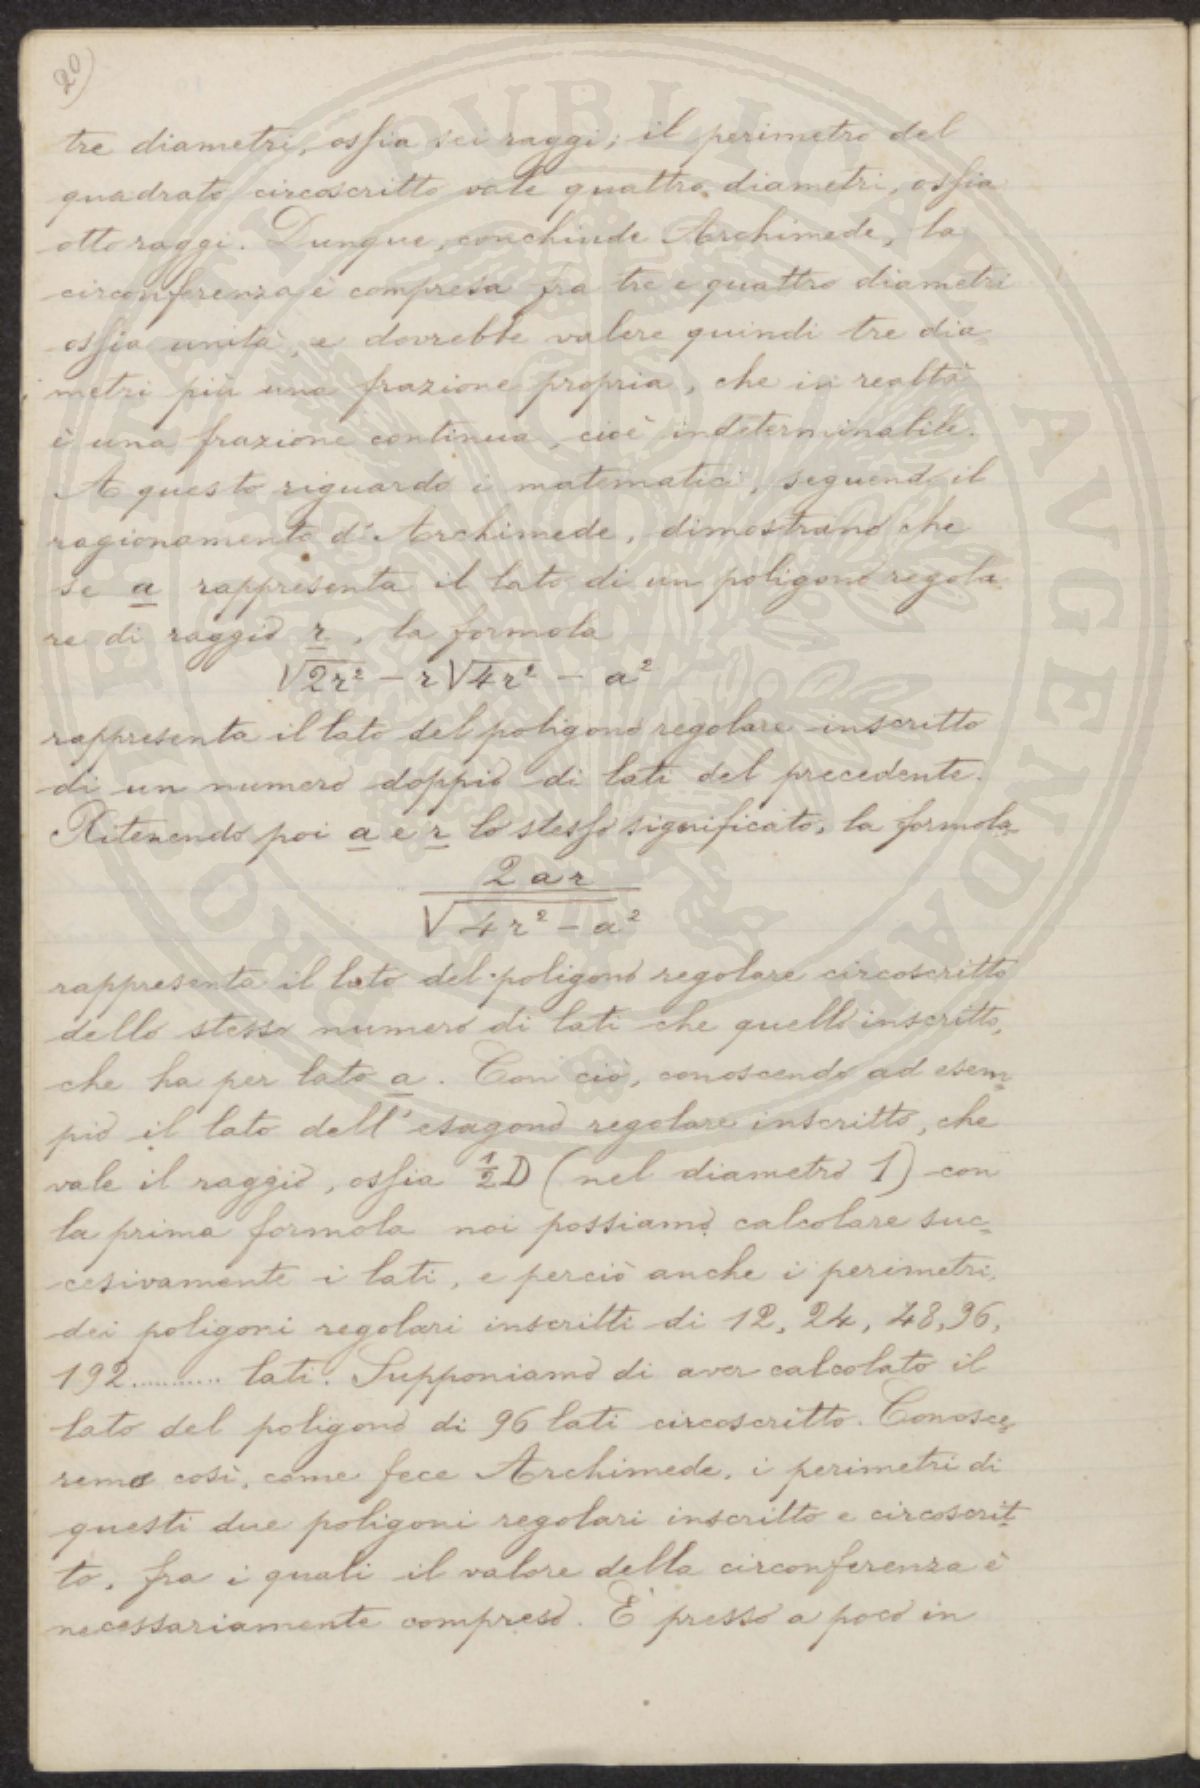 20)
tre diametri, ossia sei raggi; il perimetro del
quadrato circoscritto vale quattro diametri, ossia
otto raggi. Dunque, conchiude Archimede, la
circonferenza è compresa fra tre e quattro diametri
ossia unità, e dovrebbe valere quindi tre dia-
metri più una frazione propria, che in realtà
è una frazione continua, cioè indeterminabile.
A questo riguardo i matematici, seguendo il
ragionamento d'Archimede, dimostrano che
se a rappresenta il lato di un poligono regola-
re di raggio r, la formola
√2r² - r√4r² - a²
rappresenta il lato del poligono regolare inscritto
di un numero doppio di lati del precedente.
Ritenendo poi a e r lo stesso significato, la formola
2ar
√4r² - a²
rappresenta il lato del poligono regolare circoscritto
dello stesso numero di lati che quello inscritto,
che ha per lato a. Con ciò, conoscendo ad esem-
pio il lato dell'esagono regolare inscritto, che
vale il raggio, ossia ½D (nel diametro 1) con
la prima formola noi possiamo calcolare suc-
cesivamente i lati, e perciò anche i perimetri,
dei poligoni regolari inscritti di 12, 24, 48, 96,
192........... lati. Supponiamo di aver calcolato il
lato del poligono di 96 lati circoscritto. Conosce-
remo così, come fece Archimede, i perimetri di
questi due poligoni regolari inscritto e circoscrit-
to, fra i quali il valore della circonferenza è
necessariamente compreso. E' presso a poco in
PROSPERITATI PUBLICAE AUGENDAE